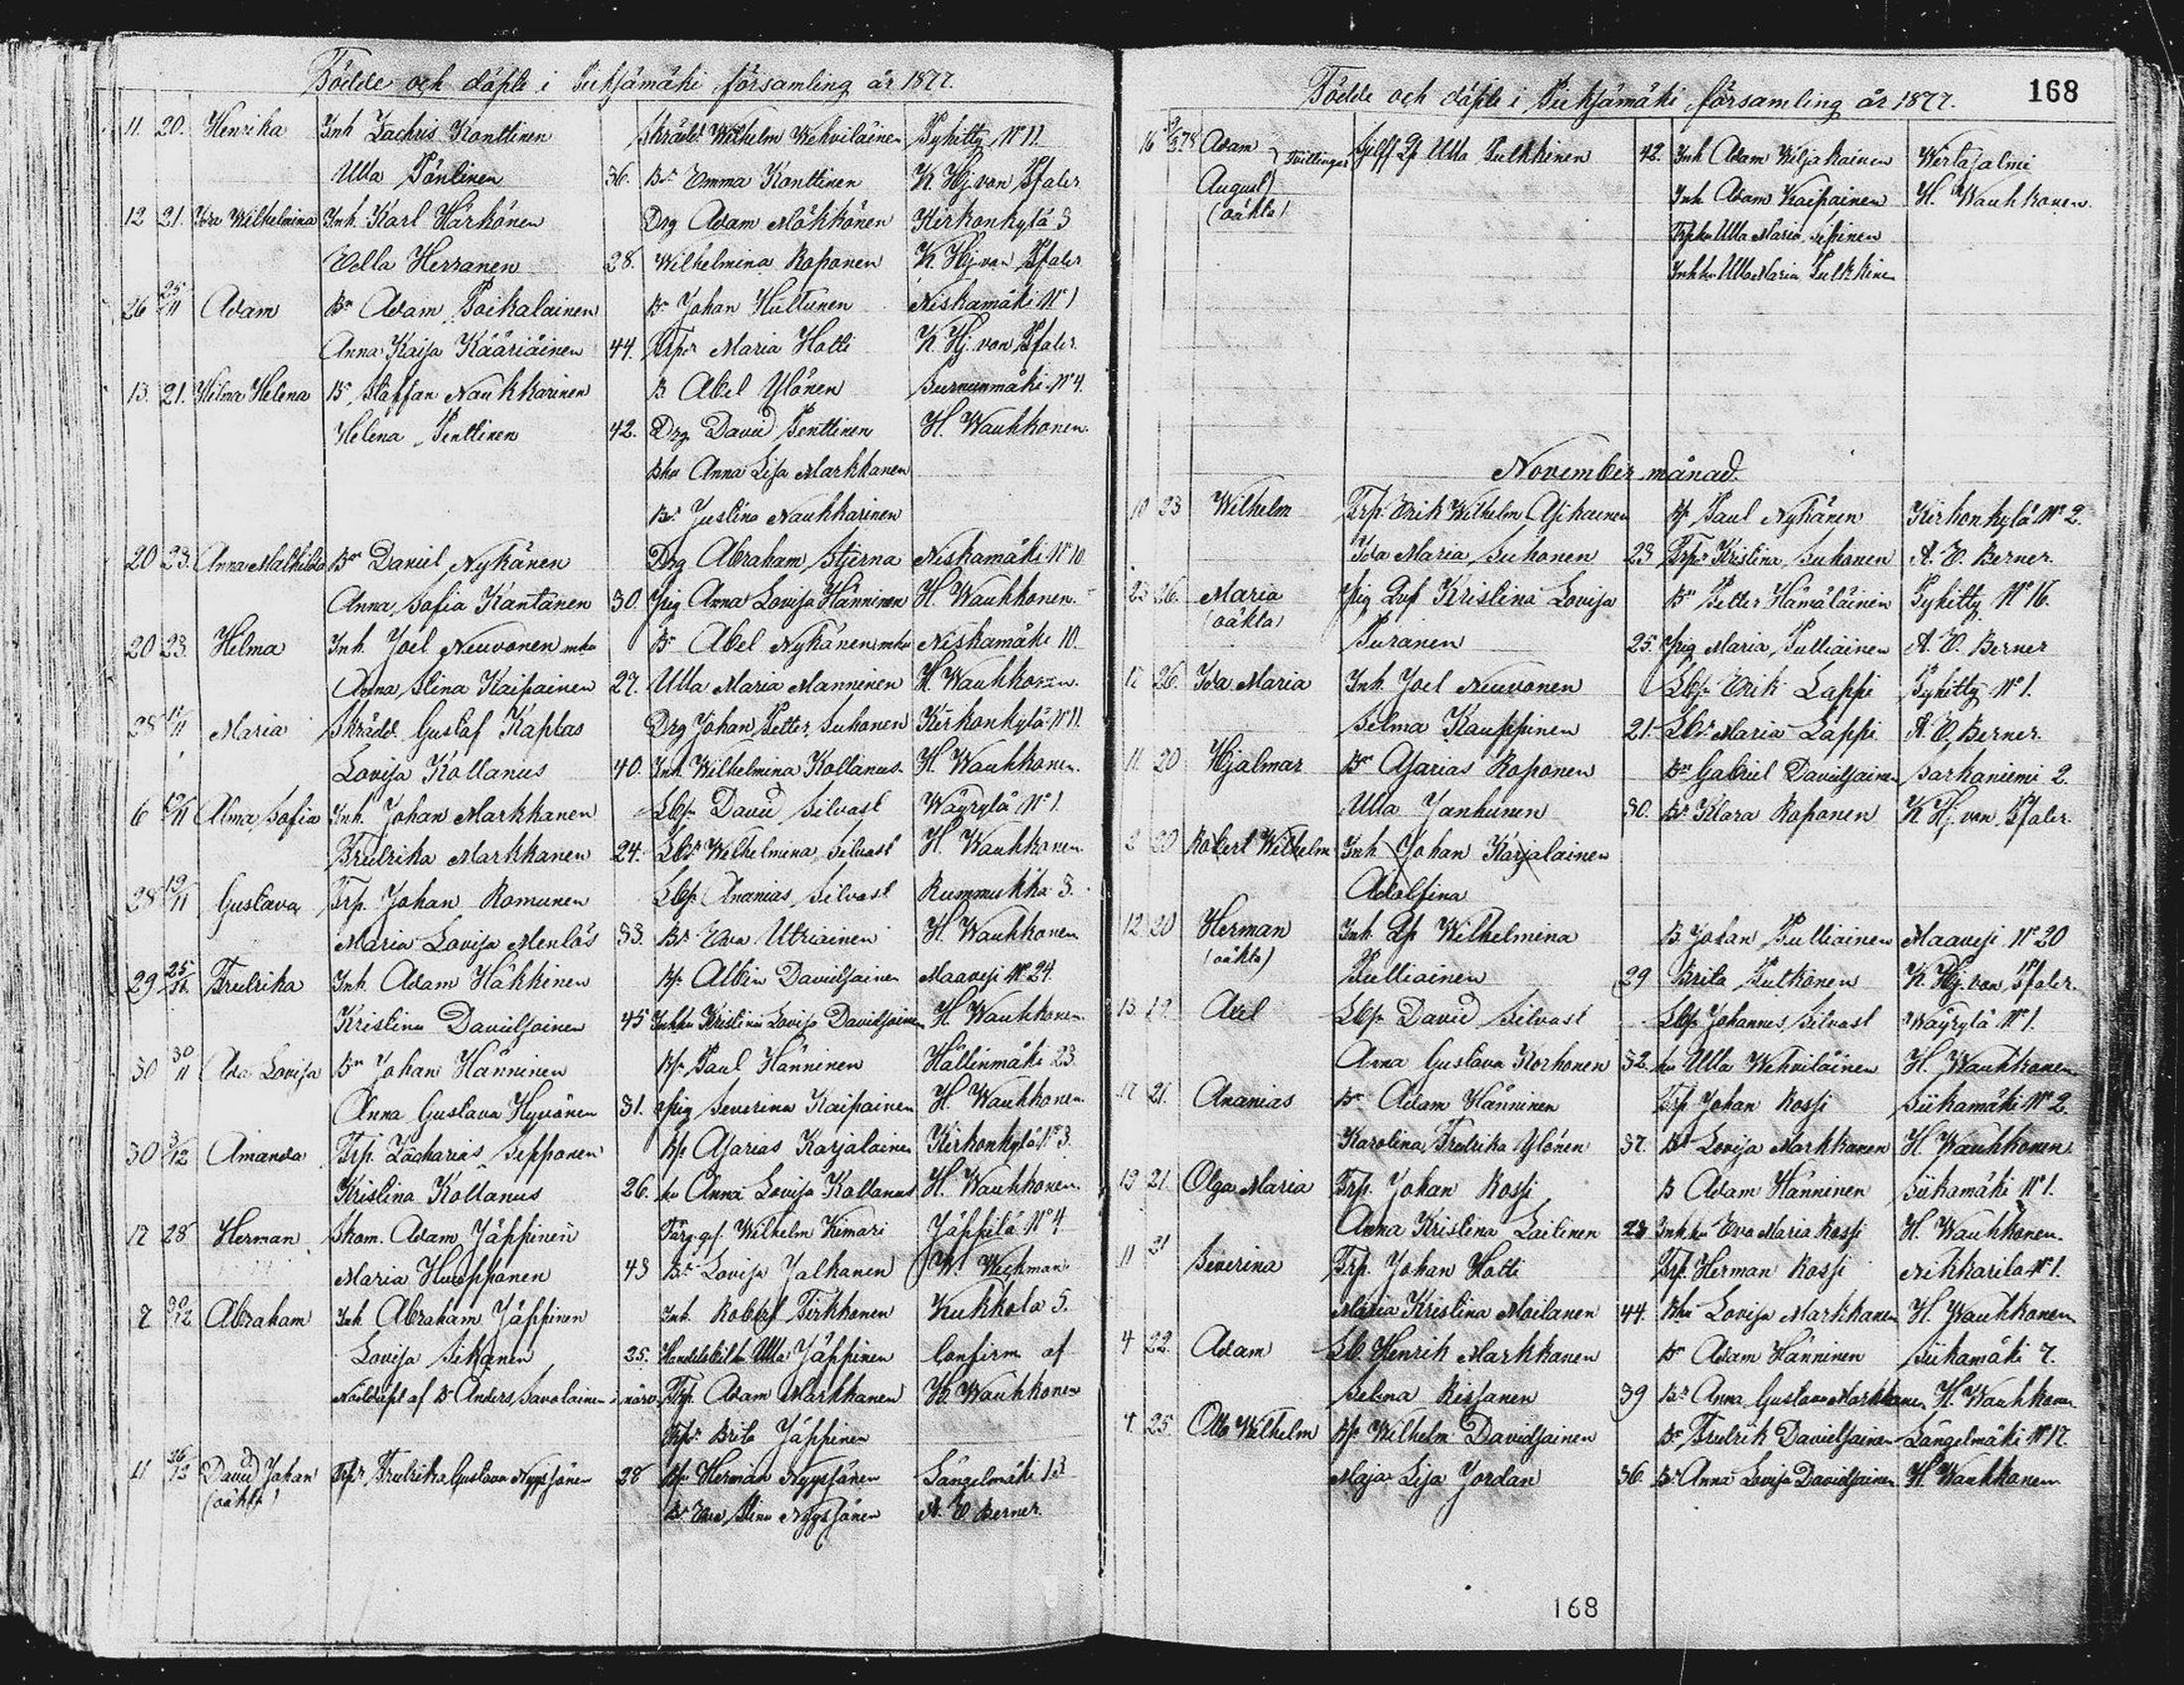 Födde och döpte i Pieksämäki församling år 1877.
11. 20. Henrika Inh Zachris Konttinen Skrädd. Wilhelm Wehviläinen Pyhitty N:o 11.
Ulla Pöntinen 36. Br Emma Konttinen K. Hj. von Pfaler
12 21. Ida Wilhelmina Inh. Karl Härkönen Drg Adam Mökkönen Kirkonkylä 3
Vella Herranen 28. Wilhelmina Roponen K. Hj. von Pfaler
26 25/11 Adam Bn Adam Poikalainen Bn Johan Hultunen Niskamäki N:o 1
Anna Kaisa Kääriäinen 44. Trpr Maria Hotti K. Hj. von Pfaler.
13. 21. Hilma Helena Bn Staffan Naukkarinen B Abel Ylönen Surnunmäki N:o 4.
Helena Penttinen 42. Drg. David Penttinen H. Wauhkonen.
Bhu Anna Lisa Markkanen
Br Justina Naukkarinen
20 23. Anna Mathilda Bn Daniel Nykänen Drg Abraham Stjerna Niskamäki N:o 10
Anna Sofia Kantanen 30. Pig Anna Lovisa Hänninen H. Wauhkonen.
20 23. Helma Inh. Joel Neuvonen mhu Bn Abel Nykänen mhu Niskamäki 10.
Anna Stina Kaipainen 27. Ulla Maria Manninen H. Wauhkonen.
28 11/11 Maria Skrädd. Gustaf Kaplas Drg Johan Petter Suhonen Kirkonkylä N:o 11.
Lovisa Kollanus 40. Inh. Wilhelmina Kollanus H. Wauhkonen.
6 Alma Sofia Inh. Johan Markkanen Lbp. David Silvast Wäyrylä N:o 1.
Fredrika Markkanen 24. Lbr Wilhelmina Silvast H. Wauhkonen
28 19/11 Gustava Trp. Johan Romunen Lbp Ananias Silvast Rummukka 3.
Maria Lovisa Menlös 33. Br Eva Utriainen H. Wauhkonen
29 Fredrika Inh. Adam Häkkinen Bp. Albin Davidsainen Maavesi N:o 24.
Kristina Davidsainen 45 Inhhu Kristina Lovisa Davidsainen H. Wauhkonen
30 30/11 Ada Lovisa Bn Johan Hänninen Bp. Paul Hänninen Hällinmäki 23.
Anna Gustava Hyvönen 31. Pig Severina Kaipainen H. Wauhkonen
30 3/12 Amanda Trp. Zacharias Sepponen Bp Asarias Karjalainen Kirkonkylä N:o 3.
Kristina Kollanus 26. hu Anna Lovisa Kollanus H. Wauhkonen.
17 28 Herman Skom. Adam Jäppinen Färg.ges. Wilhelm Kimari Jäppilä N:o 4
Maria Huupponen 43 Br Lovisa Jalkanen W. Weckman
7 Abraham Inh Abraham Jäppinen Inh. Robert Tirkkonen Kukkola 5.
Lovisa Sikanen 25. Ulla Jäppinen Confirm af
Nöddöpt af Bn Anders Savolainen i närv. Trp. Adam Markkanen H. Wauhkonen
Trpr Brita Jäppinen
11 David Johan Trpr Fredrika Gustava Nyyssönen 28 Bp Herman Nyyssönen Längelmäki 13
(oäkta) Br Eva Stina Nyyssönen A. E. Berner.
Födde och döpte i Pieksämäki församling år 1877. 168
16 Adam Tvillingar Ulla Pulkkinen 42. Inh Adam Wiljakainen Wirtasalmi
August Inh. Adam Kaipainen H. Wauhkonen.
(oäkta) Trphu Ulla Maria Sepinen
Inhhu Ulla Maria Pulkkinen
November månad.
10 23 Wilhelm Trp. Erik Wilhelm Asikainen Bp Paul Nykänen Kirkonkylä N:o 2.
Ida Maria Suhonen 23 Trpr Kristina Suhonen A. E. Berner.
23 26. Maria Pig Kristina Lovisa Bn Petter Hämäläinen Pyhitty N:o 16.
(oäkta) Puranen 25. Pig Maria Pulliainen A. E. Berner
17 26. Ida Maria Inh. Joel Neuvonen Lbp Erik Lappi Pyhitty N:o 1.
Selma Kauppinen 21. Lbr Maria Lappi A. E. Berner.
11. 20 Hjalmar Bn Asarias Roponen Bn Gabriel Davidsainen Sarkaniemi 2.
Ulla Janhunen 30. Br Klara Roponen K. Hj. von Pfaler.
2 20 Robert Wilhelm Inh Johan Karjalainen
Adolfina
12 20 Herman Inh. Qp Wilhelmina B. Johan Pulliainen Maavesi N:o 20
(oäkta) Pulliainen 29 Brita Putkonen K. Hj. von Pfaler.
13. Axel Lbp. David Silvast Lbp. Johannes Silvast Wäyrylä N:o 1.
Anna Gustava Korhonen 32. hu Ulla Wehviläinen H. Wauhkonen
17 21. Ananias Bn Adam Hänninen Trp Johan Rossi Siikamäki N:o 2.
Karolina Fredrika Ylönen 37. Br Lovisa Markkanen H. Wauhkonen
19 21. Olga Maria Trp. Johan Rossi B Adam Hänninen Siikamäki N:o 1.
Anna Kristina Laitinen 23 Inhhu Eva Maria Rossi H. Wauhkonen.
11 21 Severina Trp. Johan Hotti Trp. Herman Rossi Nikkarila N:o 1.
Maria Kristina Moilanen 44. Bhu Lovisa Markkanen H. Wauhkonen
4 22. Adam Lb. Henrik Markkanen Bn Adam Hänninen Siikamäki 7.
Selma Rissanen 39 Br Anna Gustava Markkanen H. Wauhkonen
4. 25. Otto Wilhelm Bp. Wilhelm Davidsainen Bn Fredrik Davidsainen Längelmäki N:o 17.
Maja Lisa Jordan 36. Br Anna Lovisa Davidsainen H. Wauhkonen
168